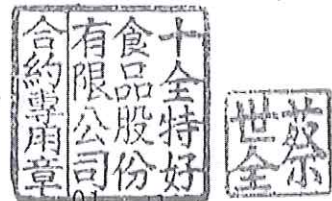 十全特好
食品股份
有限公司
合約專用章
蔡
世全
01